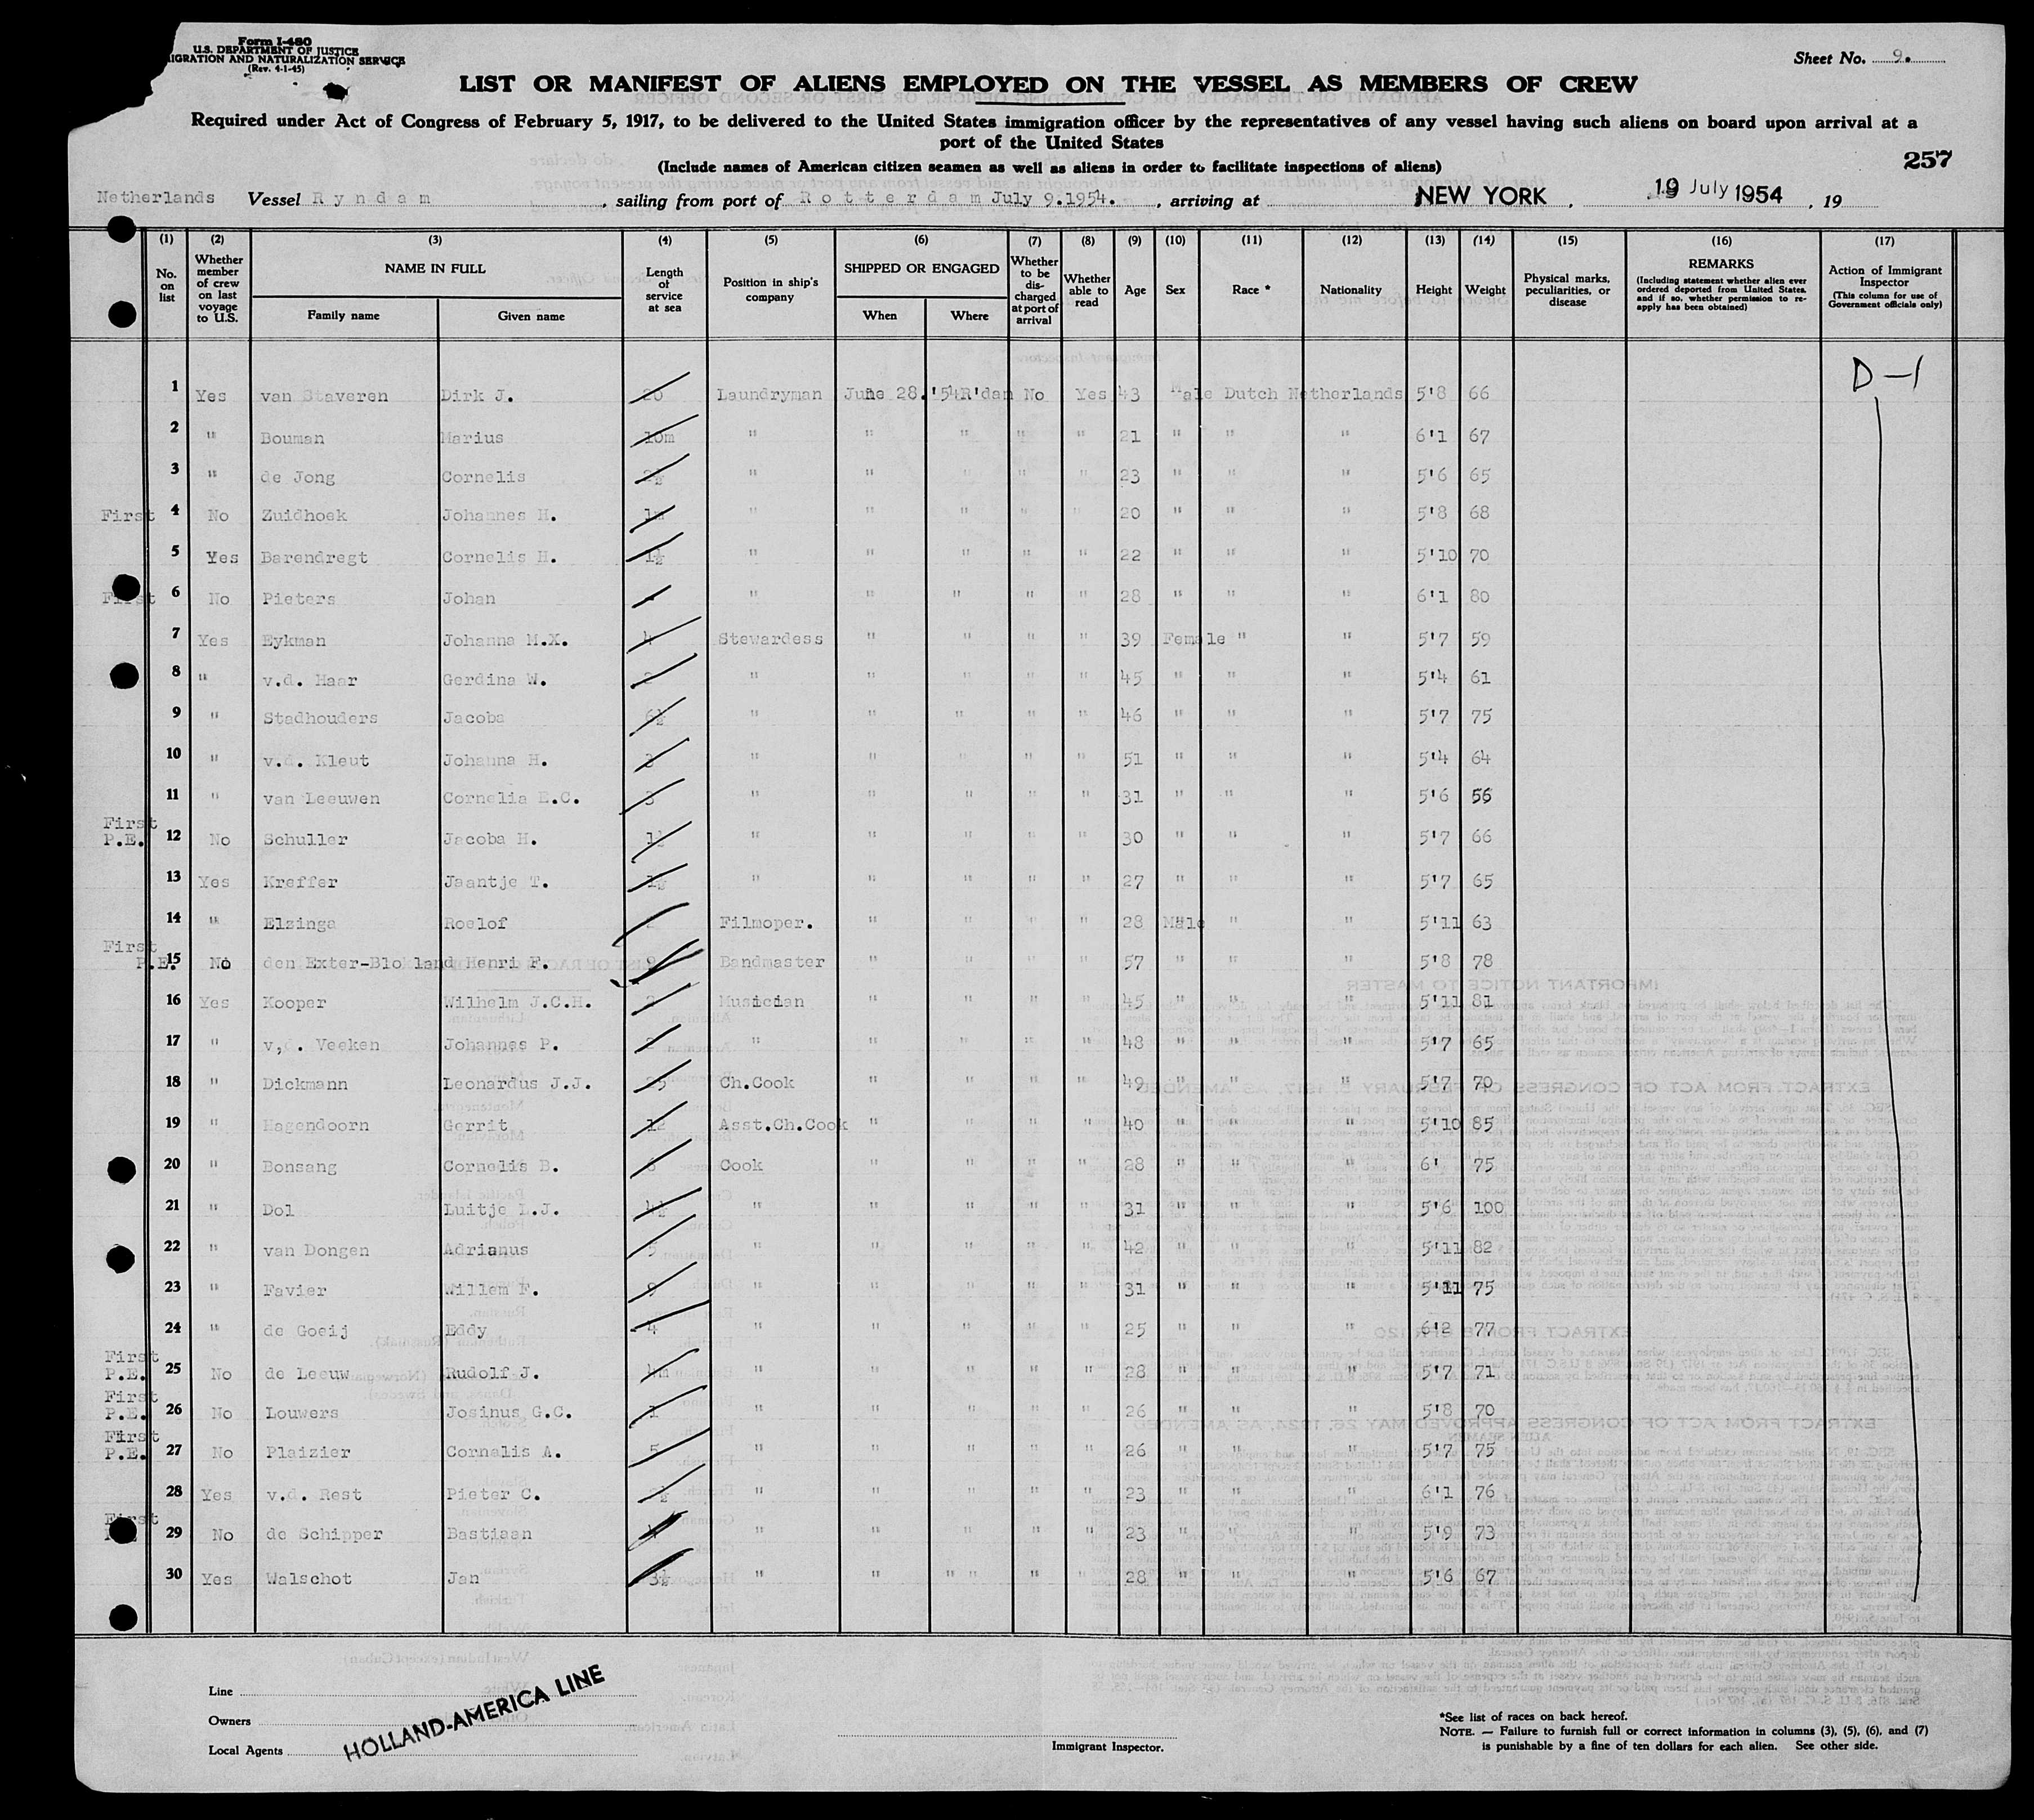 Form I-480
U.S. DEPARTMENT OF JUSTICE
IGRATION AND NATURALIZATION SERVICE
(Rev. 4-1-45)
Sheet No. 9.
LIST OR MANIFEST OF ALIENS EMPLOYED ON THE VESSEL AS MEMBERS OF CREW
Required under Act of Congress of February 5, 1917, to be delivered to the United States immigration officer by the representatives of any vessel having such aliens on board upon arrival at a
port of the United States
(Include names of American citizen seamen as well as aliens in order to facilitate inspections of aliens)
257
Netherlands Vessel Ryndam, sailing from port of Rotterdam July 9.1954., arriving at NEW YORK, 19 July 1954, 19
(1) (2) (3) (4) (5) (6) (7) (8) (9) (10) (11) (12) (13) (14) (15) (16) (17)
No. on list
Whether member of crew on last voyage to U.S.
NAME IN FULL
Family name
Given name
Length of service at sea
Position in ship's company
SHIPPED OR ENGAGED
When
Where
Whether to be discharged at port of arrival
Whether able to read
Age
Sex
Race *
Nationality
Height
Weight
Physical marks, peculiarities, or disease
REMARKS
(Including statement whether alien ever ordered deported from United States, and if so, whether permission to re-apply has been obtained)
Action of Immigrant Inspector
(This column for use of Government officials only)
D-1
1 Yes van Staveren Dirk J. 20 Laundryman June 28.'54 R'dam No Yes 43 Male Dutch Netherlands 5'8 66
2 " Bouman Marius 10m " " " " " 21 " " " 6'1 67
3 " de Jong Cornelis 2½ " " " " " 23 " " " 5'6 65
First 4 No Zuidhoek Johannes H. 1m " " " " " 20 " " " 5'8 68
5 Yes Barendregt Cornelis H. 1½ " " " " " 22 " " " 5'10 70
First 6 No Pieters Johan " " " " " 28 " " " 6'1 80
7 Yes Eykman Johanna M.X. 4 Stewardess " " " " 39 Female " " 5'7 59
8 " v.d. Haar Gerdina W. 2 " " " " " 45 " " " 5'4 61
9 " Stadhouders Jacoba 6½ " " " " " 46 " " " 5'7 75
10 " v.d. Kleut Johanna H. 3 " " " " " 51 " " " 5'4 64
11 " van Leeuwen Cornelia E.C. 3 " " " " " 31 " " " 5'6 56
First
P.E. 12 No Schuller Jacoba H. 1½ " " " " " 30 " " " 5'7 66
13 Yes Kreffer Jaantje T. 1½ " " " " " 27 " " " 5'7 65
14 " Elzinga Roelof 2 Filmoper. " " " " 28 Male " " 5'11 63
First
P.E. 15 No den Exter-Blokland Henri F. 9 Bandmaster " " " " 57 " " " 5'8 78
16 Yes Kooper Wilhelm J.C.H. 2 Musician " " " " 45 " " " 5'11 81
17 " v, . Veeken Johannes P. 2 " " " " " 48 " " " 5'7 65
18 " Dickmann Leonardus J.J. 25 Ch.Cook " " " " 49 " " " 5'7 70
19 " Hagendoorn Gerrit 12 Asst.Ch.Cook " " " " 40 " " " 5'10 85
20 " Bonsang Cornelis B. 6 Cook " " " " 28 " " " 6' 75
21 " Dol Luitje L.J. 4½ " " " " " 31 " " " 5'6 100
22 " van Dongen Adrianus 5 " " " " " 42 " " " 5'11 82
23 " Favier Willem F. 9 " " " " " 31 " " " 5'11 75
24 " de Goeij Eddy 4 " " " " " 25 " " " 6'2 77
First
P.E. 25 No de Leeuw Rudolf J. 4m " " " " " 28 " " " 5'7 71
First
P.E. 26 No Louwers Josinus G.C. 1 " " " " " 26 " " " 5'8 70
First
P.E. 27 No Plaizier Cornelis A. 5 " " " " " 26 " " " 5'7 75
28 Yes v.d. Rest Pieter C. " " " " " 23 " " " 6'1 76
First
29 No de Schipper Bastiaan 4 " " " " " 23 " " " 5'9 73
30 Yes Walschot Jan 3½ " " " " " " 28 " " " 5'6 67
Line
Owners
Local Agents
HOLLAND-AMERICA LINE
Immigrant Inspector.
*See list of races on back hereof.
NOTE. — Failure to furnish full or correct information in columns (3), (5), (6), and (7)
is punishable by a fine of ten dollars for each alien. See other side.